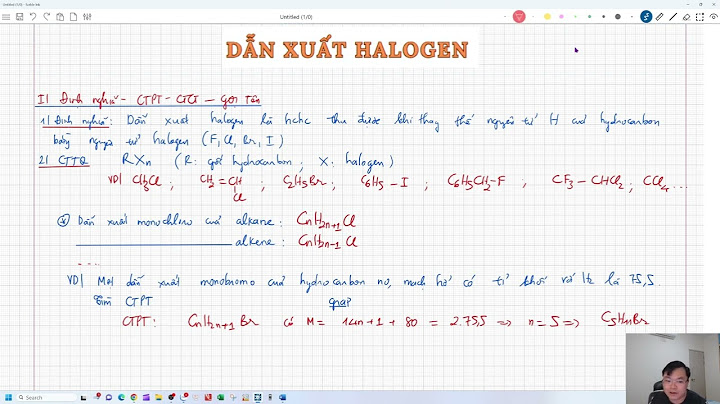 Untitled (1/0)
DẪN XUẤT HALOGEN
I| Định nghĩa - CTPT - CTCT - Gọi Tên
1| Định nghĩa: Dẫn xuất halogen là hchc thu được khi thay thế nguyên tử H của hydrocarbon
bằng nguyên tử halogen (F, Cl, Br, I)
2| CTTQ RXn (R: gốc hydrocarbon; X: halogen)
VD| CH3Cl ; CH2=CH ; C2H5Br ; C6H5-I ; C6H5CH2-F ; CF3-CHCl2 ; CCl4 ...
Cl
* Dẫn xuất monochloro của alkane: CnH2n+1Cl
alkene: CnH2n-1Cl
....
VD| Một dẫn xuất monobromo của hydrocarbon no, mạch hở có tỉ khối với H2 là 75,5.
Tìm CTPT
Giải
CTPT: CnH2n+1Br có M = 14n+1+80 = 2.75,5 => n=5 => C5H11Br
Search